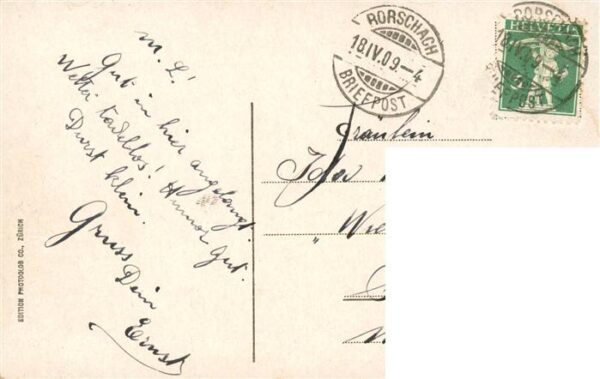 M. L!
Gut in hier angelangt.
Wetter tadellos! Humor gut.
Durst klein.
Gruss Dein
Ernst
EDITION PHOTOGLOB CO., ZÜRICH
RORSCHACH
18.IV.09.-4
BRIEFPOST
HELVETIA
RORSCHACH
18.IV.09
Fräulein
Ida
" Wie